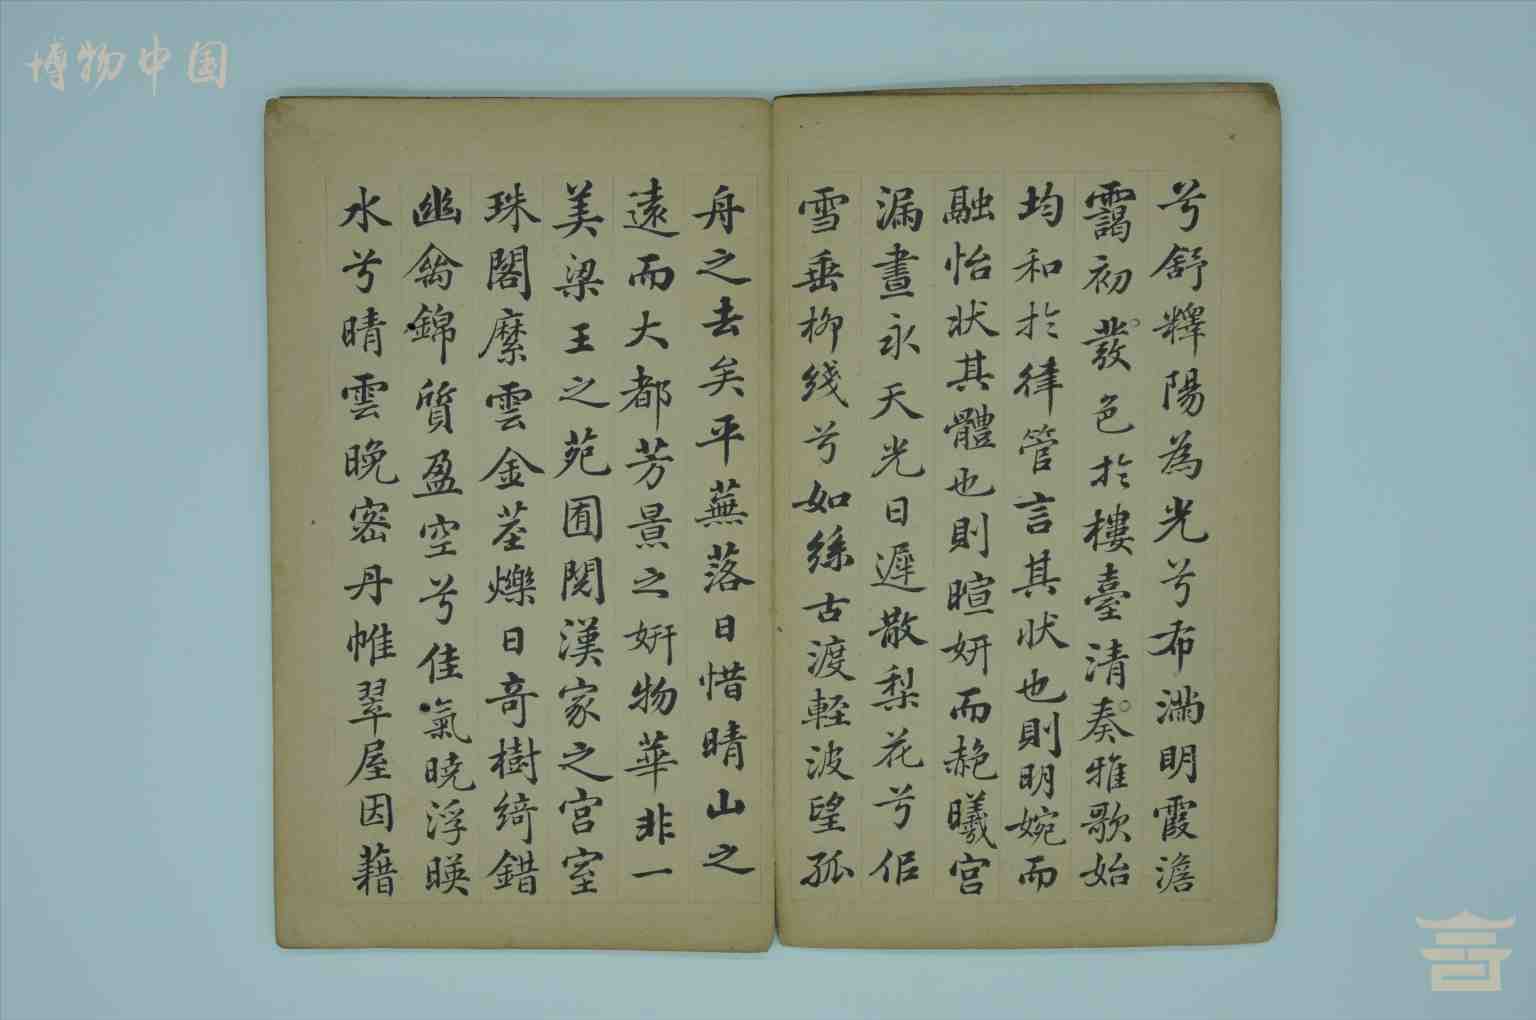 博物中国
兮舒釋陽為光兮布滿明霞澹
靄初發色於樓臺清奏雅歌始
均和於律管言其狀也則明婉而
融怡狀其體也則暄妍而赩曦宮
漏晝永天光日遲散梨花兮似
雪垂柳线兮如絲古渡輕波望孤
舟之去矣平蕪落日惜晴山之
遠而大都芳景之妍物華非一
美梁王之苑囿閱漢家之宮室
珠閣縻雲金莖爍日奇樹綺錯
幽禽錦質盈空兮佳氣曉浮暎
水兮晴雲晚密丹帷翠屋因藉